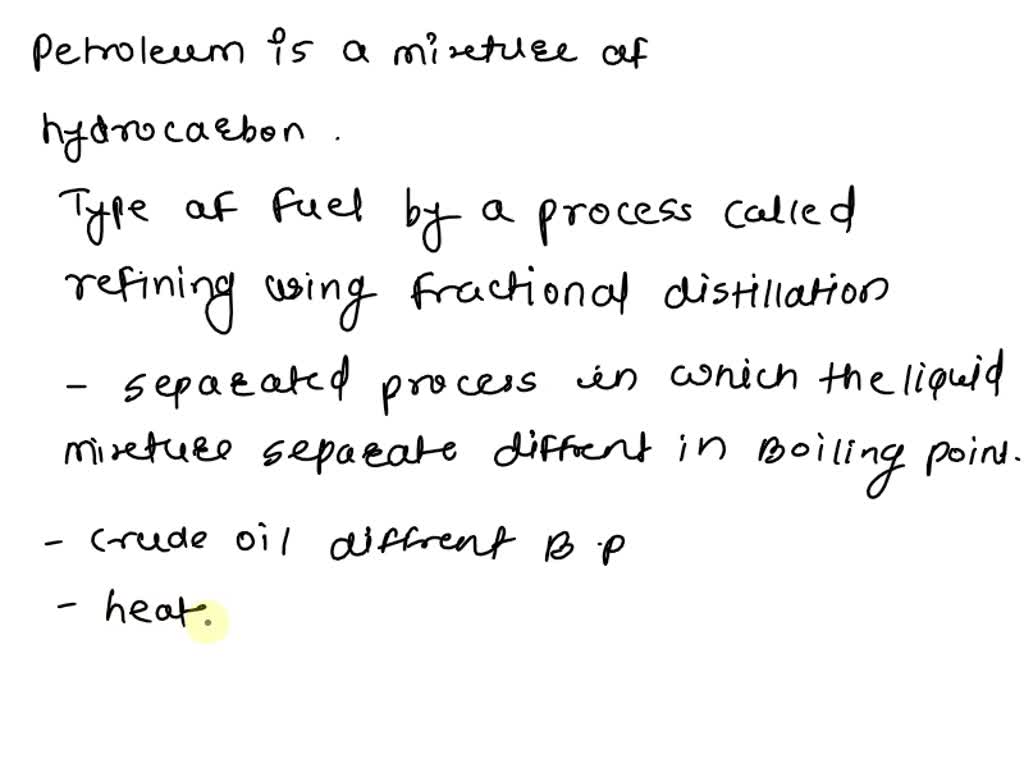 Petroleum is a mixture of
hydrocarbon .
Type of fuel by a process called
refining using fractional distillation
- separated process in which the liquid
mixture separate diffrent in Boiling point.
- crude oil diffrent B.P
- heat.